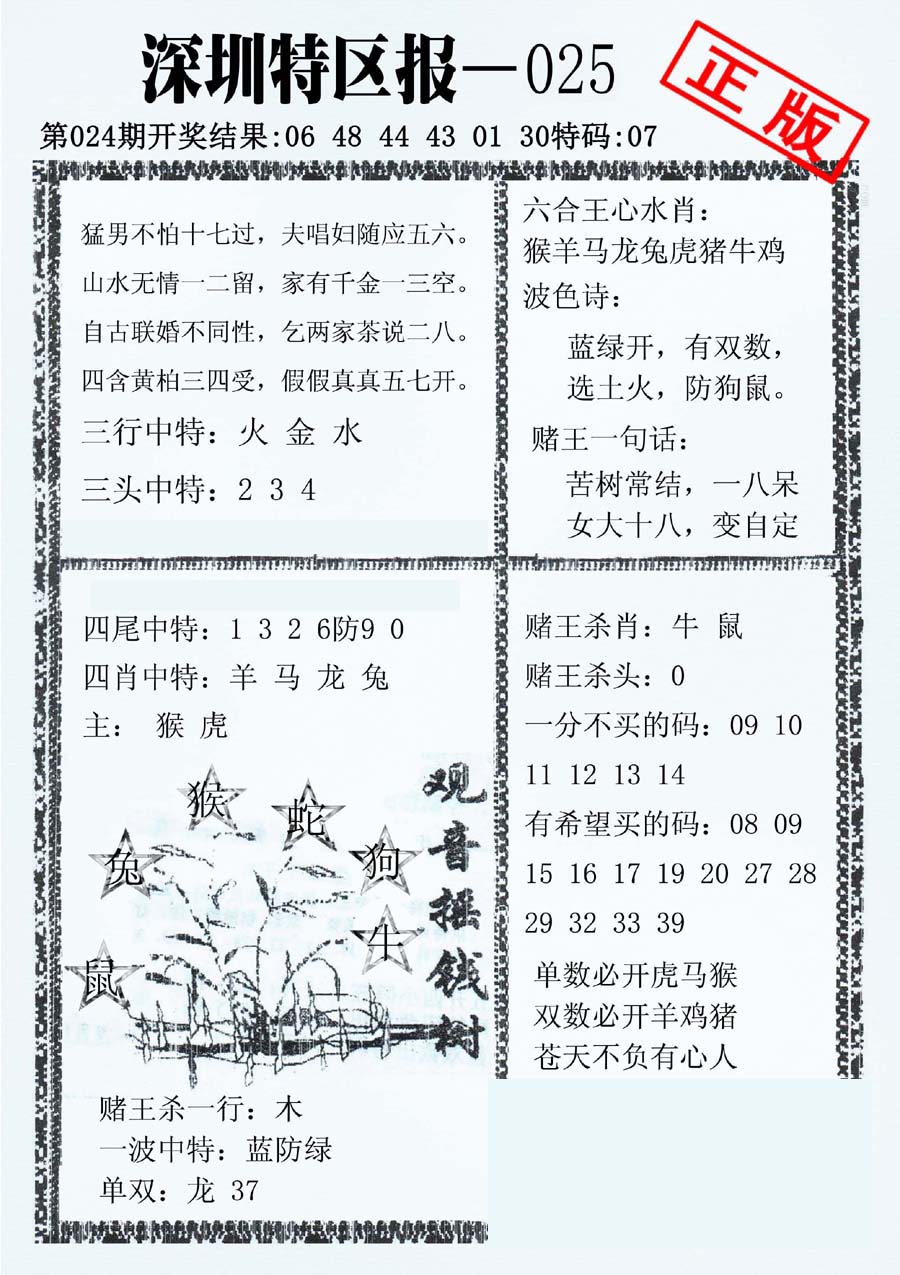 深圳特区报—025
正版
第024期开奖结果:06 48 44 43 01 30特码:07
猛男不怕十七过，夫唱妇随应五六。
山水无情一二留，家有千金一三空。
自古联婚不同性，乞两家茶说二八。
四含黄柏三四受，假假真真五七开。
三行中特：火 金 水
三头中特：2 3 4
六合王心水肖：
猴羊马龙兔虎猪牛鸡
波色诗：
蓝绿开，有双数，
选土火，防狗鼠。
赌王一句话：
苦树常结，一八呆
女大十八，变自定
四尾中特：1 3 2 6防9 0
四肖中特：羊 马 龙 兔
主： 猴 虎
猴
蛇
兔
狗
牛
鼠
观音摇钱树
赌王杀一行：木
一波中特：蓝防绿
单双：龙 37
赌王杀肖：牛 鼠
赌王杀头：0
一分不买的码：09 10
11 12 13 14
有希望买的码：08 09
15 16 17 19 20 27 28
29 32 33 39
单数必开虎马猴
双数必开羊鸡猪
苍天不负有心人